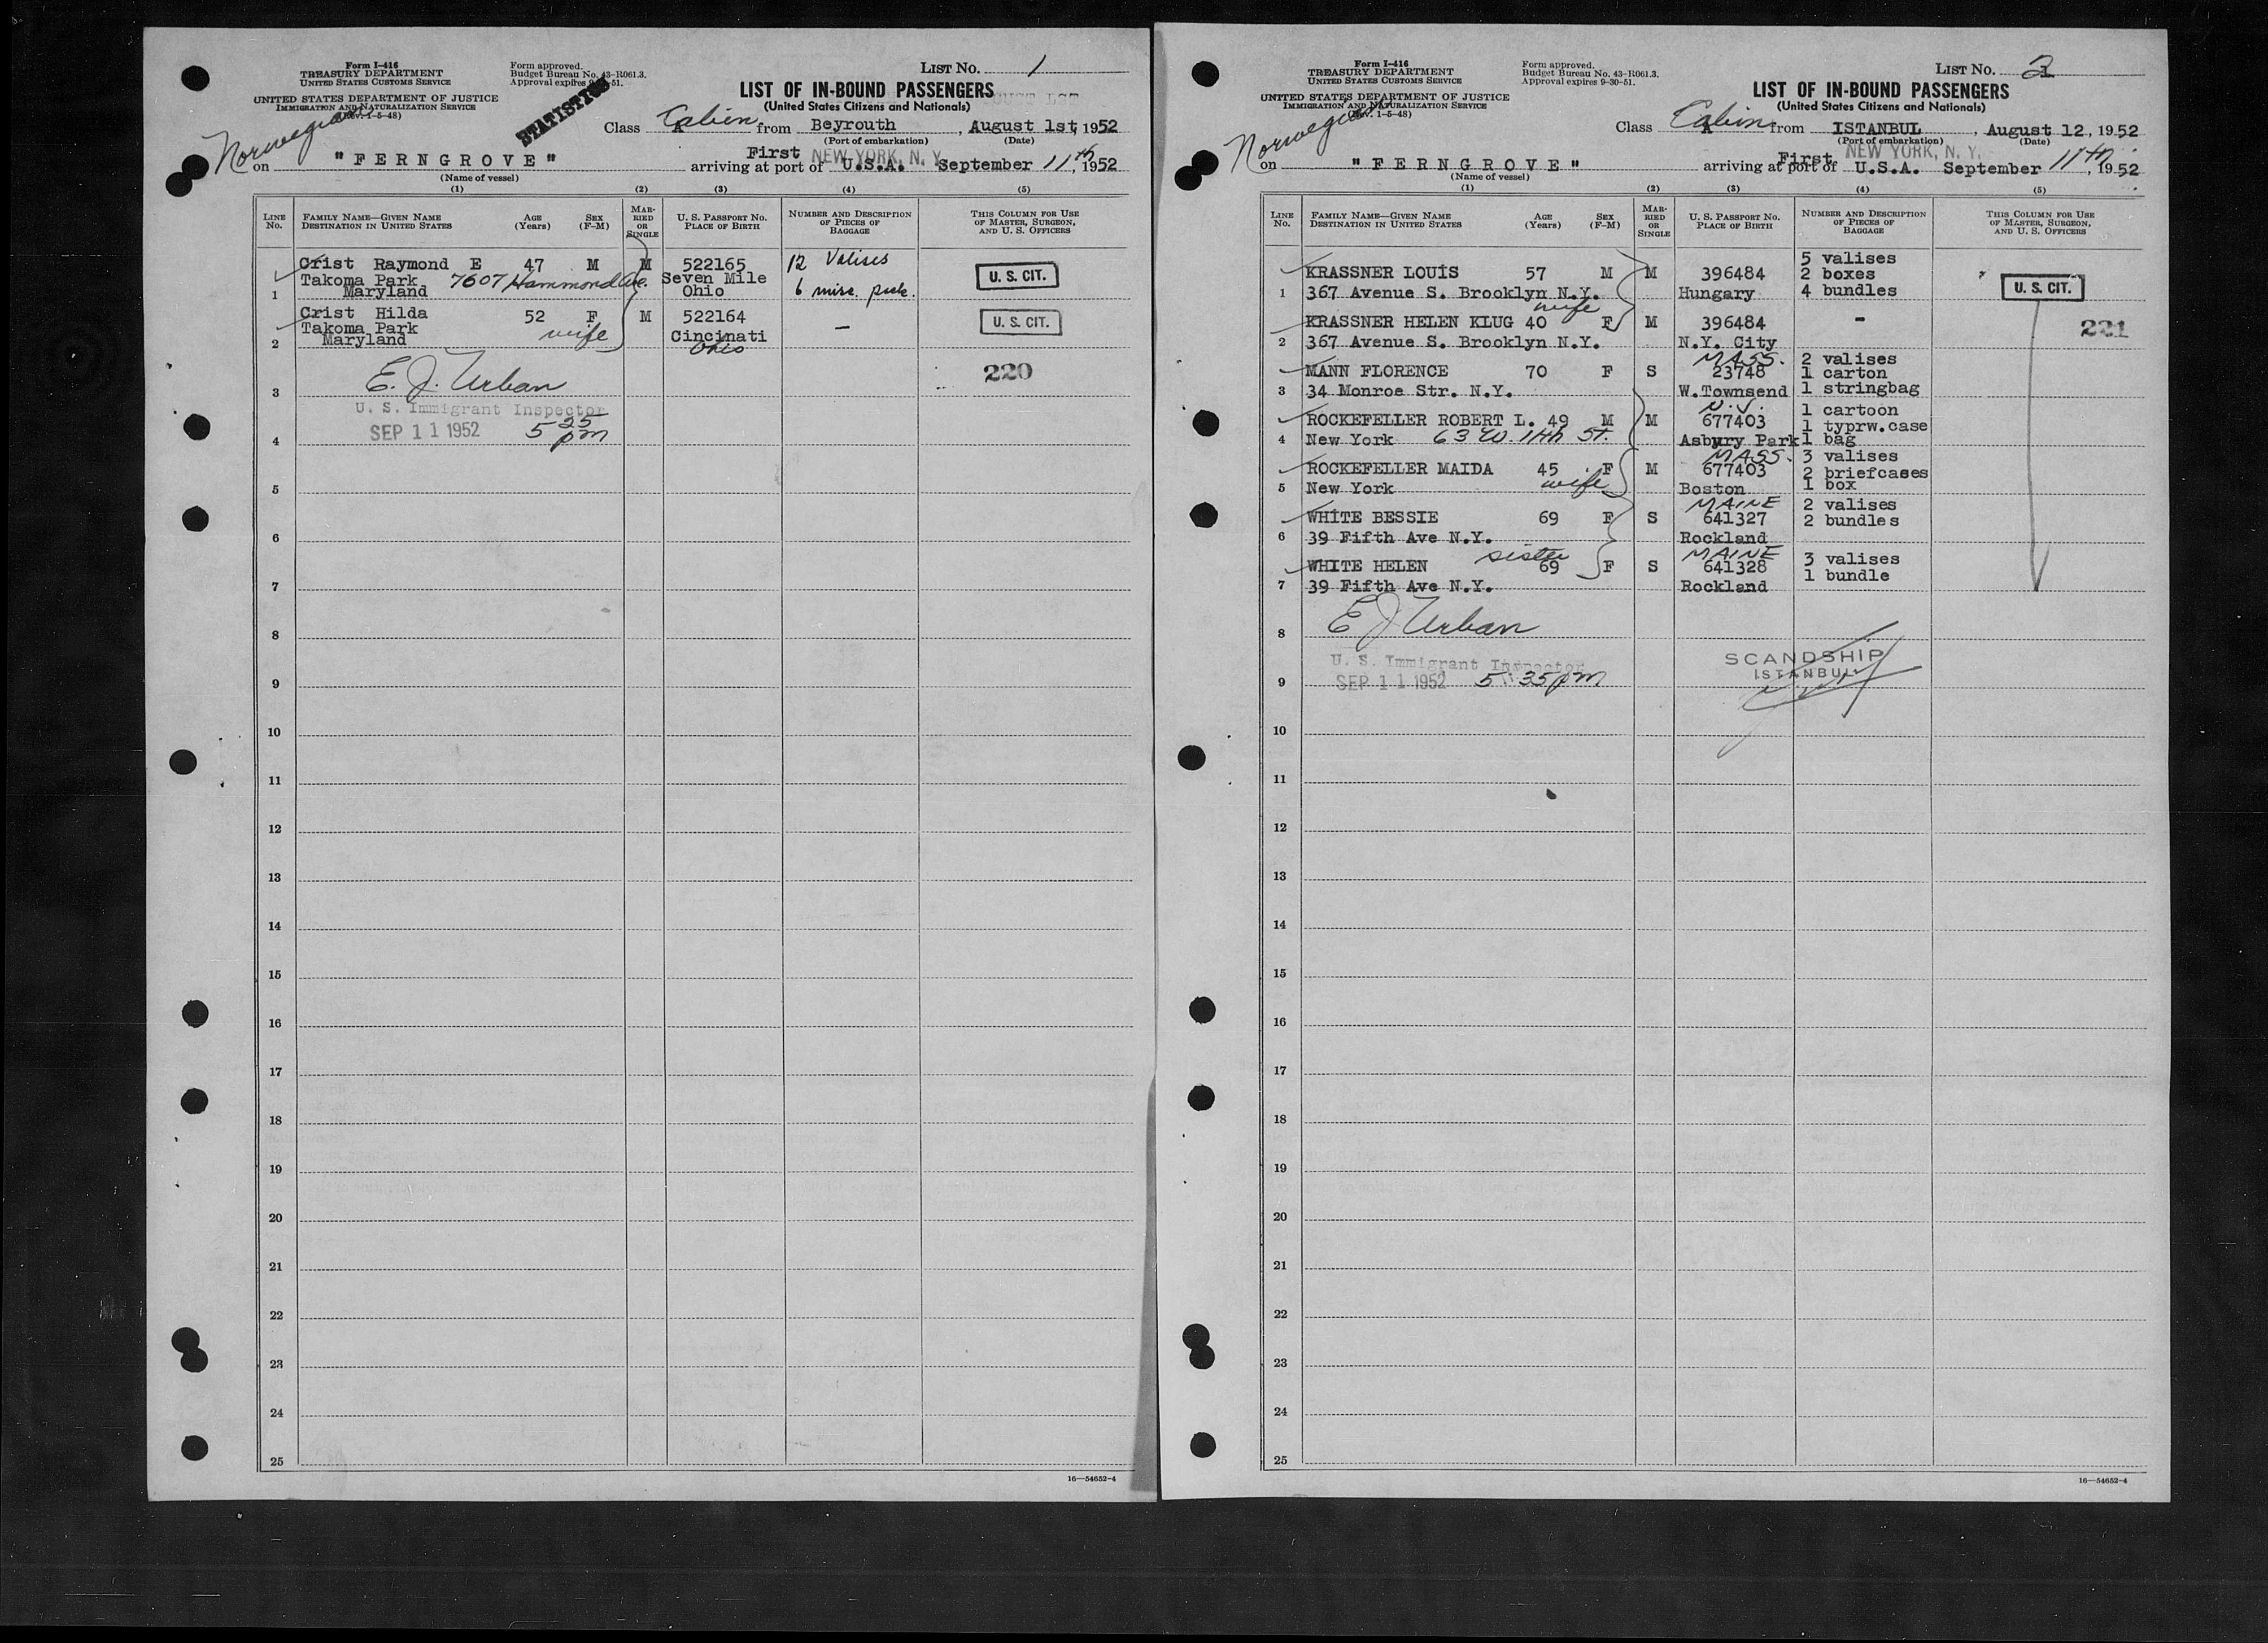 Form I-416
TREASURY DEPARTMENT
UNITED STATES CUSTOMS SERVICE
UNITED STATES DEPARTMENT OF JUSTICE
IMMIGRATION AND NATURALIZATION SERVICE
(Rev. 1-5-48)
Form approved.
Budget Bureau No. 43-R061.3.
Approval expires 9-30-51.
STATISTICS
LIST No. 1
LIST OF IN-BOUND PASSENGERS
(United States Citizens and Nationals)
Norwegian
Class Cabin from Beyrouth, August 1st, 1952
(Port of embarkation) (Date)
on "FERNGROVE" arriving at port of First NEW YORK, N. Y. U.S.A. September 11th, 1952
(Name of vessel)
(1) (2) (3) (4) (5)
LINE No.
FAMILY NAME—GIVEN NAME DESTINATION IN UNITED STATES
AGE (Years)
SEX (F-M)
MARRIED OR SINGLE
U. S. PASSPORT NO. PLACE OF BIRTH
NUMBER AND DESCRIPTION OF PIECES OF BAGGAGE
THIS COLUMN FOR USE OF MASTER, SURGEON, AND U. S. OFFICERS
Crist Raymond E 47 M M 522165 12 Valises U. S. CIT.
Takoma Park 7607 Hammond Ave. Seven Mile
1 Maryland Ohio 6 misc. pck.
Crist Hilda 52 F M 522164 — U. S. CIT.
Takoma Park wife Cincinati
2 Maryland Ohio
E. J. Urban 220
3
U. S. Immigrant Inspector
SEP 11 1952 5 25 pm
4
5
6
7
8
9
10
11
12
13
14
15
16
17
18
19
20
21
22
23
24
25
16—54652-4
Form I-416
TREASURY DEPARTMENT
UNITED STATES CUSTOMS SERVICE
UNITED STATES DEPARTMENT OF JUSTICE
IMMIGRATION AND NATURALIZATION SERVICE
(Rev. 1-5-48)
Form approved.
Budget Bureau No. 43-R061.3.
Approval expires 9-30-51.
LIST No. 2
LIST OF IN-BOUND PASSENGERS
(United States Citizens and Nationals)
Norwegian
Class Cabin from ISTANBUL, August 12, 1952
(Port of embarkation) (Date)
on "FERNGROVE" arriving at port of First NEW YORK, N. Y. U.S.A. September 11th, 1952
(Name of vessel)
(1) (2) (3) (4) (5)
LINE No.
FAMILY NAME—GIVEN NAME DESTINATION IN UNITED STATES
AGE (Years)
SEX (F-M)
MARRIED OR SINGLE
U. S. PASSPORT NO. PLACE OF BIRTH
NUMBER AND DESCRIPTION OF PIECES OF BAGGAGE
THIS COLUMN FOR USE OF MASTER, SURGEON, AND U. S. OFFICERS
5 valises
KRASSNER LOUIS 57 M M 396484 2 boxes
1 367 Avenue S. Brooklyn N.Y. Hungary 4 bundles U. S. CIT.
wife
KRASSNER HELEN KLUG 40 F M 396484 - 221
2 367 Avenue S. Brooklyn N.Y. N.Y. City
MASS. 2 valises
MANN FLORENCE 70 F S 23748 1 carton
3 34 Monroe Str. N.Y. W.Townsend 1 stringbag
N.J. 1 cartoon
ROCKEFELLER ROBERT L. 49 M M 677403 1 typrw.case
4 New York 63 W. 11th St. Asbury Park 1 bag
MASS. 3 valises
ROCKEFELLER MAIDA 45 F M 677403 2 briefcases
5 New York wife Boston 1 box
MAINE 2 valises
WHITE BESSIE 69 F S 641327 2 bundles
6 39 Fifth Ave N.Y. Rockland
sister MAINE 3 valises
WHITE HELEN 69 F S 641328 1 bundle
7 39 Fifth Ave N.Y. Rockland
E J Urban
8
U. S. Immigrant Inspector SCANDSHIP
SEP 11 1952 5 35 pm ISTANBUL
9
10
11
12
13
14
15
16
17
18
19
20
21
22
23
24
25
16—54652-4